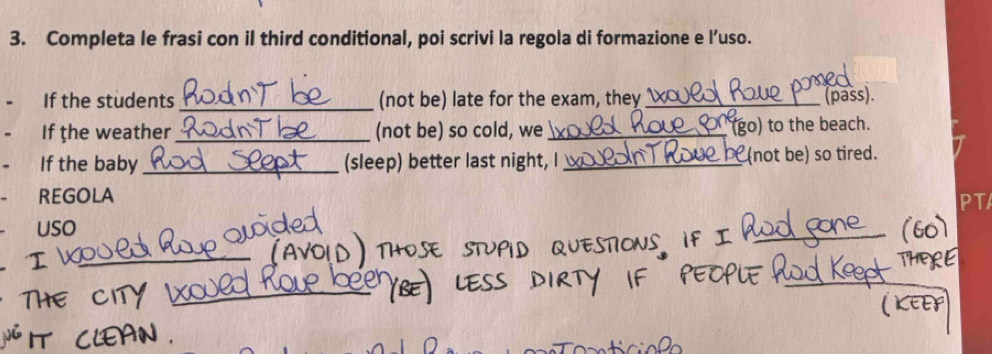 3. Completa le frasi con il third conditional, poi scrivi la regola di formazione e l'uso.
- If the students hadn't be (not be) late for the exam, they would have passed (pass).
- If the weather hadn't be (not be) so cold, we would have gone (go) to the beach.
- If the baby had sleept (sleep) better last night, I wouldn't have be (not be) so tired.
- REGOLA
PT
- USO
- I would have avoided (AVOID) THOSE STUPID QUESTIONS, IF I had gone (GO) THERE
- THE CITY would have been (BE) LESS DIRTY IF PEOPLE had keept (KEEP
IT CLEAN.